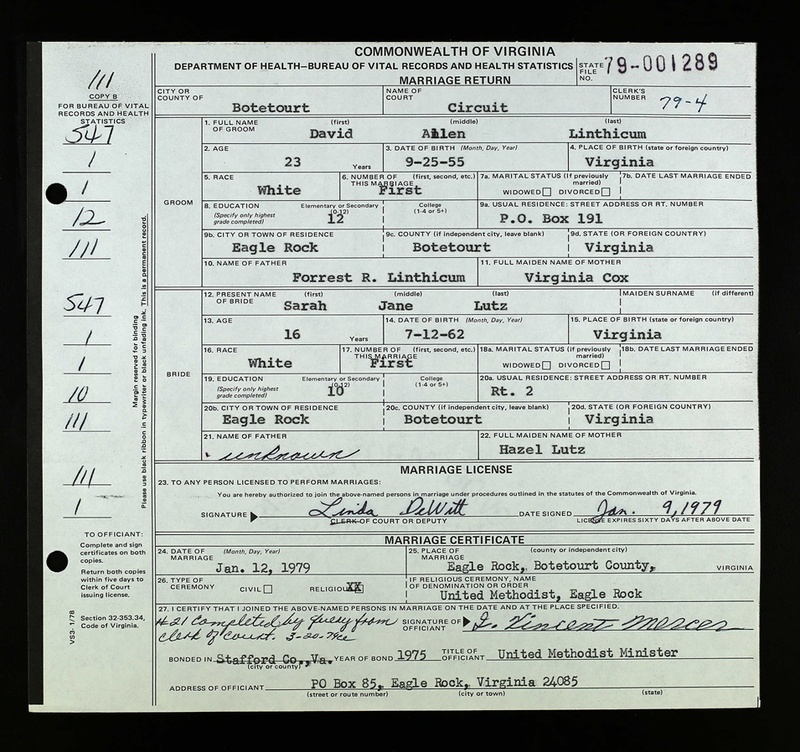 COMMONWEALTH OF VIRGINIA
DEPARTMENT OF HEALTH—BUREAU OF VITAL RECORDS AND HEALTH STATISTICS
MARRIAGE RETURN
STATE FILE NO. 79-001289
111
COPY B
FOR BUREAU OF VITAL RECORDS AND HEALTH STATISTICS
547
1
1
12
111
547
1
1
10
111
111
1
Margin reserved for binding
Please use black ribbon in typewriter or black unfading ink. This is a permanent record.
TO OFFICIANT:
Complete and sign certificates on both copies.
Return both copies within five days to Clerk of Court issuing license.
Section 32-353.34, Code of Virginia.
VS3 1/78
CITY OR COUNTY OF Botetourt
NAME OF COURT Circuit
CLERK'S NUMBER 79-4
GROOM
1. FULL NAME OF GROOM (first) (middle) (last)
David Allen Linthicum
2. AGE 23 Years
3. DATE OF BIRTH (Month, Day, Year) 9-25-55
4. PLACE OF BIRTH (state or foreign country) Virginia
5. RACE White
6. NUMBER OF THIS MARRIAGE (first, second, etc.) First
7a. MARITAL STATUS (If previously married) WIDOWED DIVORCED
7b. DATE LAST MARRIAGE ENDED
8. EDUCATION (Specify only highest grade completed) Elementary or Secondary (0-12) 12 College (1-4 or 5+)
9a. USUAL RESIDENCE: STREET ADDRESS OR RT. NUMBER P.O. Box 191
9b. CITY OR TOWN OF RESIDENCE Eagle Rock
9c. COUNTY (if independent city, leave blank) Botetourt
9d. STATE (OR FOREIGN COUNTRY) Virginia
10. NAME OF FATHER Forrest R. Linthicum
11. FULL MAIDEN NAME OF MOTHER Virginia Cox
BRIDE
12. PRESENT NAME OF BRIDE (first) (middle) (last) MAIDEN SURNAME (if different)
Sarah Jane Lutz
13. AGE 16 Years
14. DATE OF BIRTH (Month, Day, Year) 7-12-62
15. PLACE OF BIRTH (state or foreign country) Virginia
16. RACE White
17. NUMBER OF THIS MARRIAGE (first, second, etc.) First
18a. MARITAL STATUS (If previously married) WIDOWED DIVORCED
18b. DATE LAST MARRIAGE ENDED
19. EDUCATION (Specify only highest grade completed) Elementary or Secondary (0-12) 10 College (1-4 or 5+)
20a. USUAL RESIDENCE: STREET ADDRESS OR RT. NUMBER Rt. 2
20b. CITY OR TOWN OF RESIDENCE Eagle Rock
20c. COUNTY (if independent city, leave blank) Botetourt
20d. STATE (OR FOREIGN COUNTRY) Virginia
21. NAME OF FATHER unknown
22. FULL MAIDEN NAME OF MOTHER Hazel Lutz
MARRIAGE LICENSE
23. TO ANY PERSON LICENSED TO PERFORM MARRIAGES:
You are hereby authorized to join the above-named persons in marriage under procedures outlined in the statutes of the Commonwealth of Virginia.
SIGNATURE Linda DeWitt DATE SIGNED Jan. 9, 1979
CLERK OF COURT OR DEPUTY LICENSE EXPIRES SIXTY DAYS AFTER ABOVE DATE
MARRIAGE CERTIFICATE
24. DATE OF MARRIAGE (Month, Day, Year) Jan. 12, 1979
25. PLACE OF MARRIAGE (county or independent city) Eagle Rock, Botetourt County, VIRGINIA
26. TYPE OF CEREMONY CIVIL RELIGIOUS XX
IF RELIGIOUS CEREMONY, NAME OF DENOMINATION OR ORDER United Methodist, Eagle Rock
27. I CERTIFY THAT I JOINED THE ABOVE-NAMED PERSONS IN MARRIAGE ON THE DATE AND AT THE PLACE SPECIFIED.
#21 Completed by query from clerk of court. 3-20-79
SIGNATURE OF OFFICIANT Vincent Mercer
BONDED IN Stafford Co., Va. (city or county) YEAR OF BOND 1975 TITLE OF OFFICIANT United Methodist Minister
ADDRESS OF OFFICIANT PO Box 85, Eagle Rock, Virginia 24085
(street or route number) (city or town) (state)